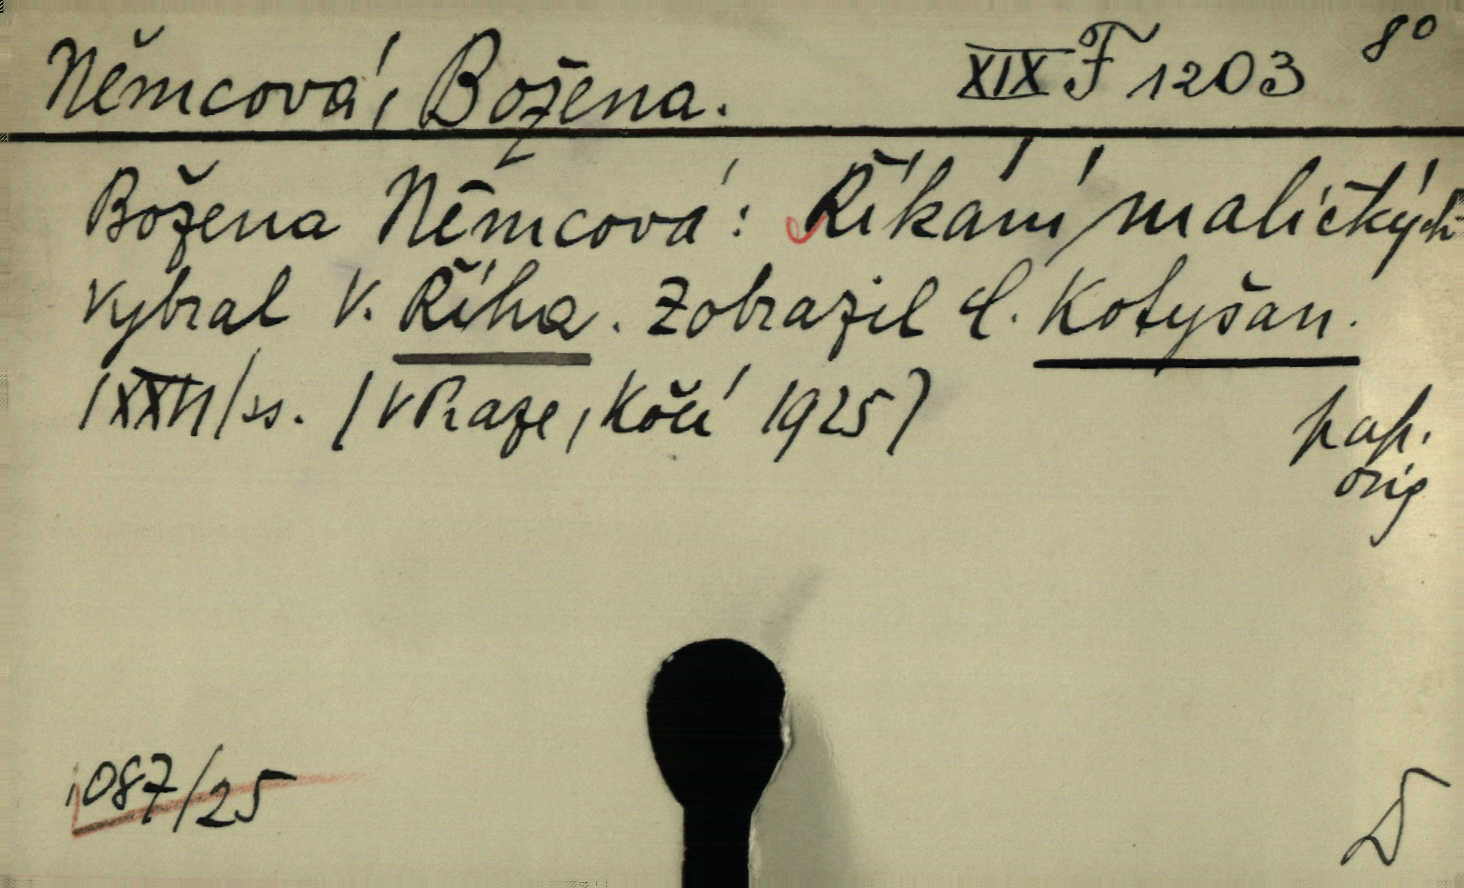 Němcová, Božena. XIX F 1203 8°
Božena Němcová: Říkání maličkých
Vybral V. Říha. Zobrazil L. Kotyšan.
/XXVI/ss. (V Praze, Kočí 1925)
pap.
orig
1087/25
D